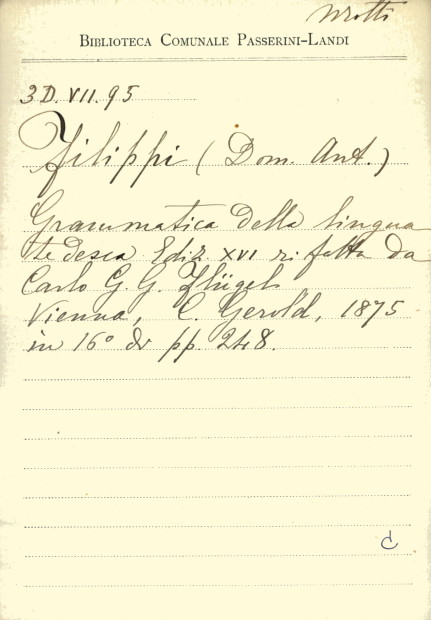 BIBLIOTECA COMUNALE PASSERINI-LANDI
3D. VII. 95
Filippi (Dom. Ant.)
Grammatica della lingua
tedesca Ediz XVI rifatta da
Carlo G. G. Flügel
Vienna, C. Gerold, 1875
in 16° di pp. 248.
C